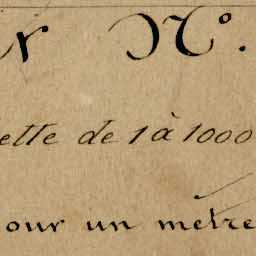 r N°.
ette de 1 à 1000
our un metre